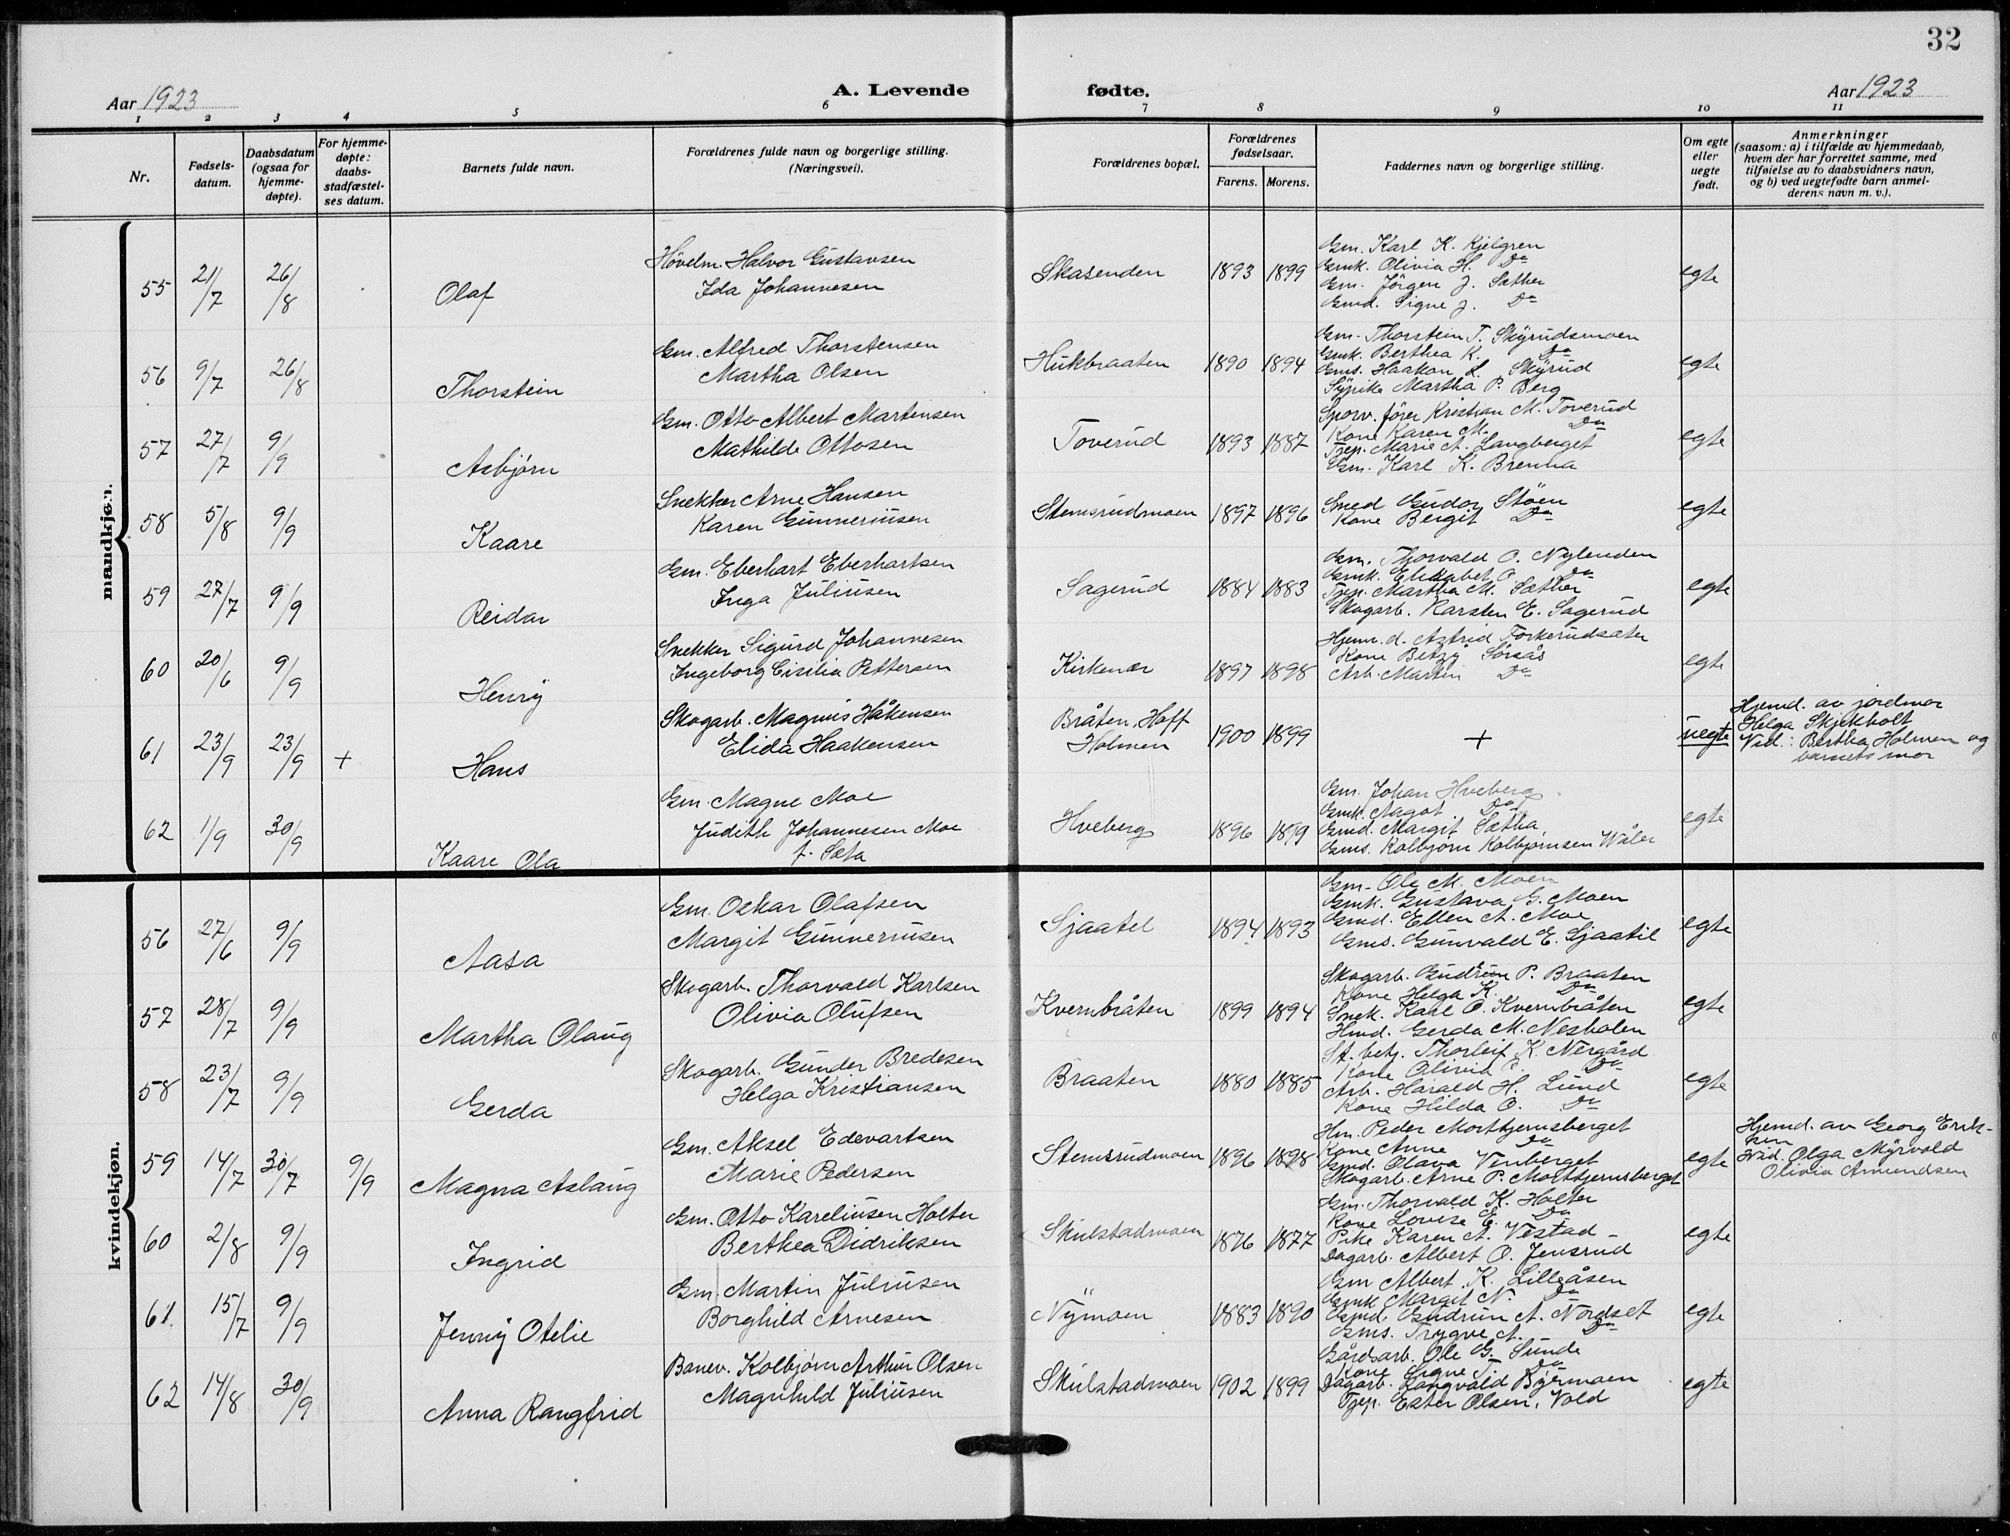 32
Aar 1923 A. Levende fødte. Aar 1923
1 2 3 4 5 6 7 8 9 10 11
Nr. Fødsels-datum. Daabsdatum (ogsaa for hjemme-døpte). For hjemme-døpte: daabs-stadfæstel-ses datum. Barnets fulde navn. Forældrenes fulde navn og borgerlige stilling. (Næringsvei). Forældrenes bopæl. Forældrenes fødselsaar. Farens. Morens. Faddernes navn og borgerlige stilling. Om egte eller uegte født. Anmerkninger (saasom: a) i tilfælde av hjemmedaab, hvem der har forrettet samme, med tilføielse av to daabsvidners navn, og b) ved uegtefødte barn anmel-derens navn m. v.).
mandkjøn.
55 21/7 26/8 Olaf
Høvelm. Halvor Gustavsen
Ida Johannesen
Skasenden 1893 1899
Gm. Karl K. Kjelgren
Gmk. Olivia H. Do
Gm. Jørgen J. Sæther
Gmd. Signe J. Do
egte
56 9/7 26/8 Thorstein
Gm. Alfred Thorstensen
Martha Olsen
Hukbraaten 1890 1894
Gm. Thorstein T. Skyrudsmoen
Gmk. Berthea K. Do
Gms. Haakon L. Skyrud
Martha P. Berg
egte
57 27/7 9/9 Asbjørn
Gm. Otto Albert Martinsen
Mathilde Ottosen
Toverud 1893 1887
Kristian M. Toverud
Kone Karen M. Do
Tjep. Marie A. Langberget
Gm. Karl K. Brenna
egte
58 5/8 9/9 Kaare
Snekker Arne Hansen
Karen Gunneriusen
Stemsrudmoen 1897 1896
Smed Gudor Støen
Kone Bergit Do
egte
59 27/7 9/9 Reidar
Gm. Eberhart Eberhartsen
Inga Juliusen
Sagerud 1884 1883
Gm. Thorvald O. Nylenden
Gmk. Elisabet O. Do
Tjep. Martha M. Sæther
Skogarb. Karsten E. Sagerud
egte
60 20/6 9/9 Henry
Snekker Sigurd Johannesen
Ingeborg Cisilia Pettersen
Kirkenær 1897 1898
Hjem. d. Astrid Torkerudsæter
Kone Betzy Sørsås
Arb. Martin Do
egte
61 23/9 23/9 + Hans
Skogarb. Magnus Håkensen
Elida Haakensen
Bråten, Hoff
Holmen 1900 1899
+
uegte
Hjemd. av jordmor
Helga Skjekbolt
Vid.: Bertha Holmen og
barnets mor
62 1/9 30/9 Kaare Ola
Gm. Magne Moe
Judith Johannesen Moe
f. Sæta
Hveberg 1896 1899
Gm. Johan Hveberg
Gmk. Aagot Do
Gmd. Margit Sætha
Gms. Kolbjørn Kolbjørnsen Wåler
egte
kvindekjøn.
56 27/6 9/9 Aasa
Gm. Oskar Olafsen
Margit Gunneriusen
Sjaatil 1894 1893
Gm. Ole M. Moen
Gmk. Gustava G. Moen
Gmd. Ellen A. Moe
Gms. Gunvald E. Sjaatil
egte
57 28/7 9/9 Martha Olaug
Skogarb. Thorvald Karlsen
Olivia Olufsen
Kvernbråten 1899 1894
Skogarb. Gudrun P. Braaten
Kone Helga K. Do
Snek. Karl O. Kvernbråten
Hmd. Gerda M. Nesholen
egte
58 23/7 9/9 Gerda
Skogarb. Gunder Bredesen
Helga Kristiansen
Braaten 1880 1885
St. betj. Thorleif K. Nergård
Kone Olivia P. Do
Arb. Harald H. Lund
Kone Hilda O. Do
egte
59 14/7 30/7 9/9 Magna Aslaug
Gm. Aksel Edevartsen
Marie Pedersen
Stemsrudmoen 1896 1898
Hm. Peder Mortkjernsberget
Kone Anne Do
Gmd. Olava Venberget
Skogarb. Arne P. Mortkjernsberget
egte
Hjemd. av Georg Erik-
sen
Vid. Olga Myrvold
Olivia Amundsen
60 2/8 9/9 Ingrid
Gm. Otto Kareliusen Holter
Berthea Didriksen
Skulstadmoen 1876 1877
Gm. Thorvald K. Holter
Kone Lovise E. Do
Pike Karen A. Vestad
Dagarb. Albert O. Jensrud
egte
61. 15/7 9/9 Jenny Otelie
Gm. Martin Juliusen
Borghild Arnesen
Nymoen 1883 1890
Gm Albert K. Lilleåsen
Gmk Margit N. Do
Gmd. Gudrun A. Nordset
Gms. Trygve A. Do
egte
62 14/8 30/9 Anna Rangfrid
Banev. Kolbjørn Arthur Olsen
Magnhild Juliusen
Skulstadmoen 1902 1899
Gårdsarb. Ole G. Sunde
Kone Signe T. Do
Dagarb. Rangvald Byermoen
Tjep. Ester Olsen, Vold
egte